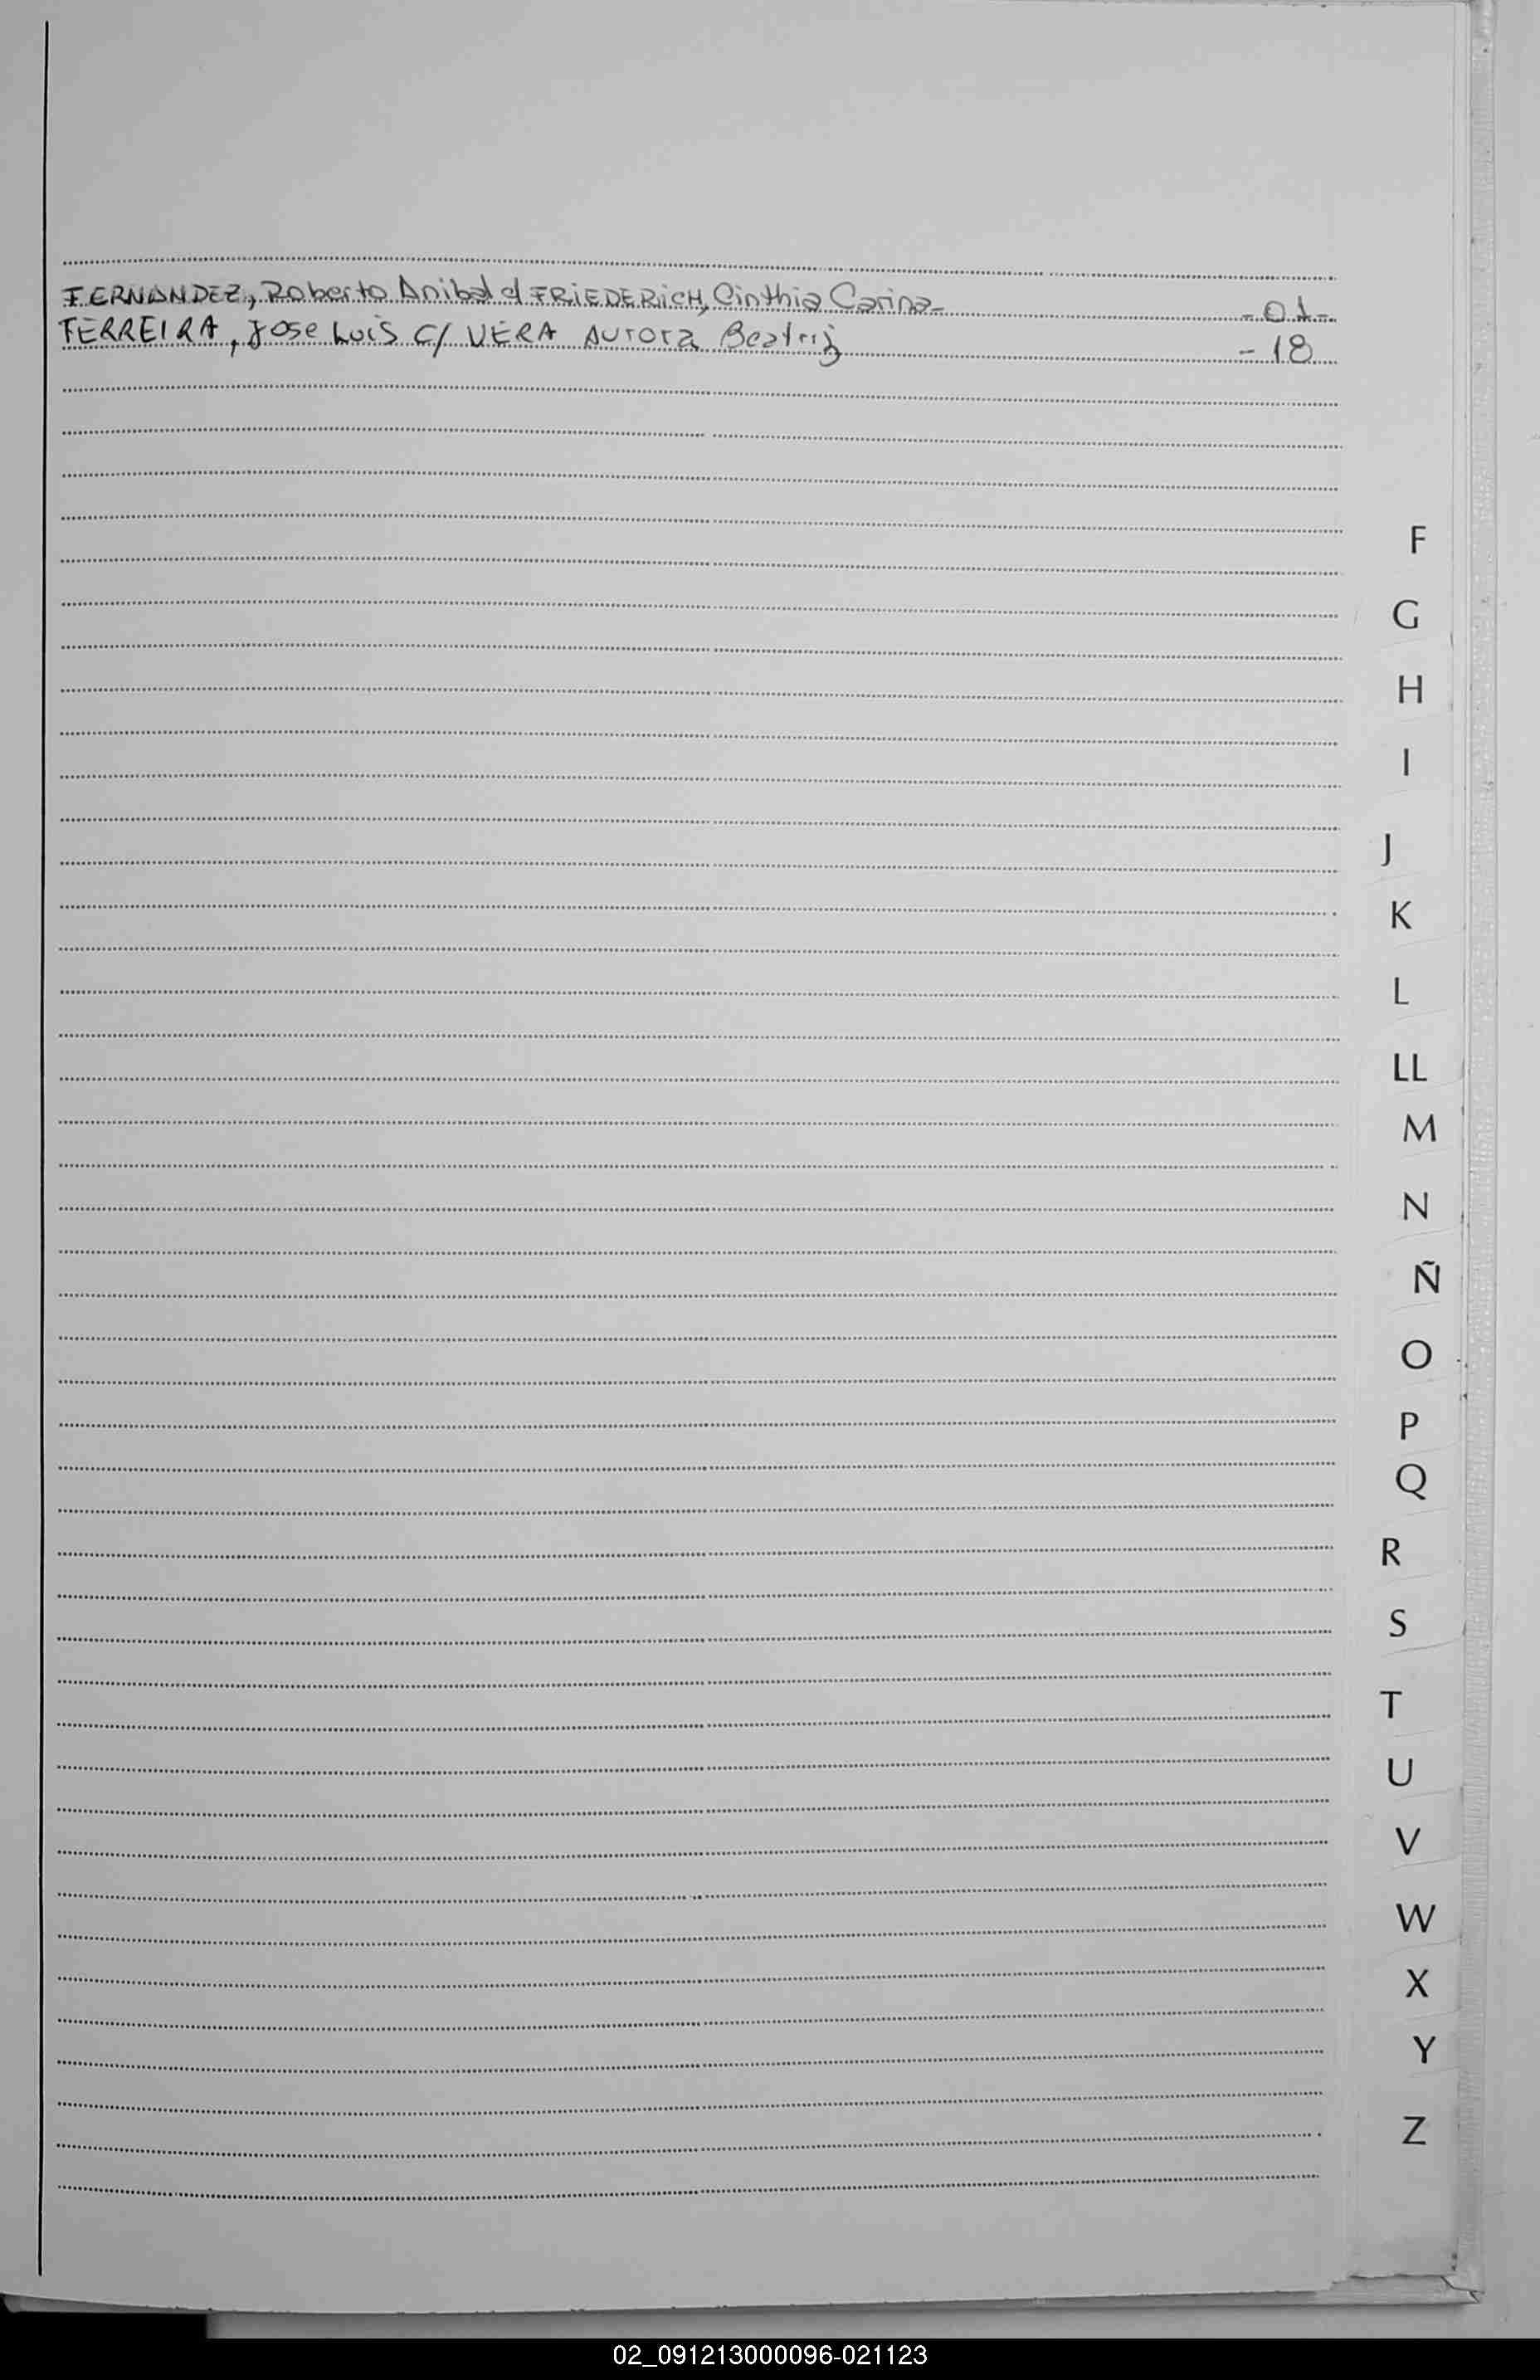 FERNANDEZ, Roberto Anibal c/ FRIEDERICH, Cinthia Carina- -01-
FERREIRA, Jose Luis c/ VERA Aurora Beatriz -18
F
G
H
I
J
K
L
LL
M
N
Ñ
O
P
Q
R
S
T
U
V
W
X
Y
Z
02_091213000096-021123